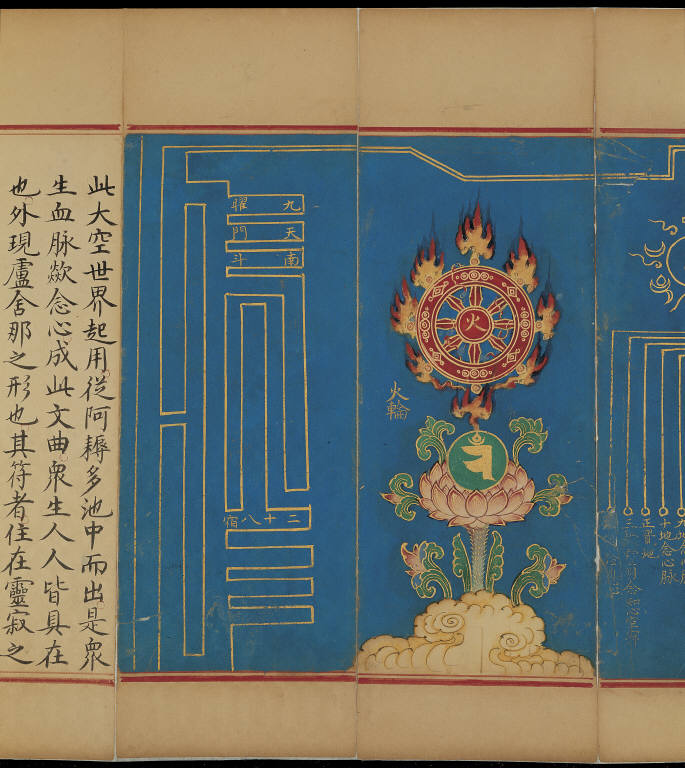 九地念心脉
十地念心脉
正賢地
火
火輪
九曜
天門
南斗
二十八宿
此大空世界起用從阿耨多池中而出是衆
生血脉欻念心成此文曲衆生人人皆具在
也外現盧舍那之形也其符者住在靈寂之